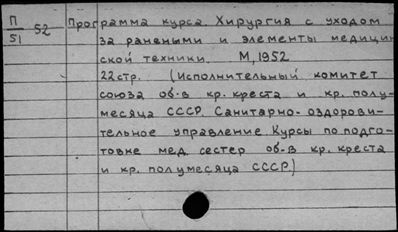 П/51 52 Программа курса Хирургия с уходом
за ранеными и элементы медицин
ской техники. М, 1952
22стр. (Исполнительный комитет
союза об-в кр. креста и кр. полу-
месяца СССР. Санитарно-оздорови-
тельное управление. Курсы по подго-
товке мед. сестер об-в кр. креста
и кр. полумесяца СССР)